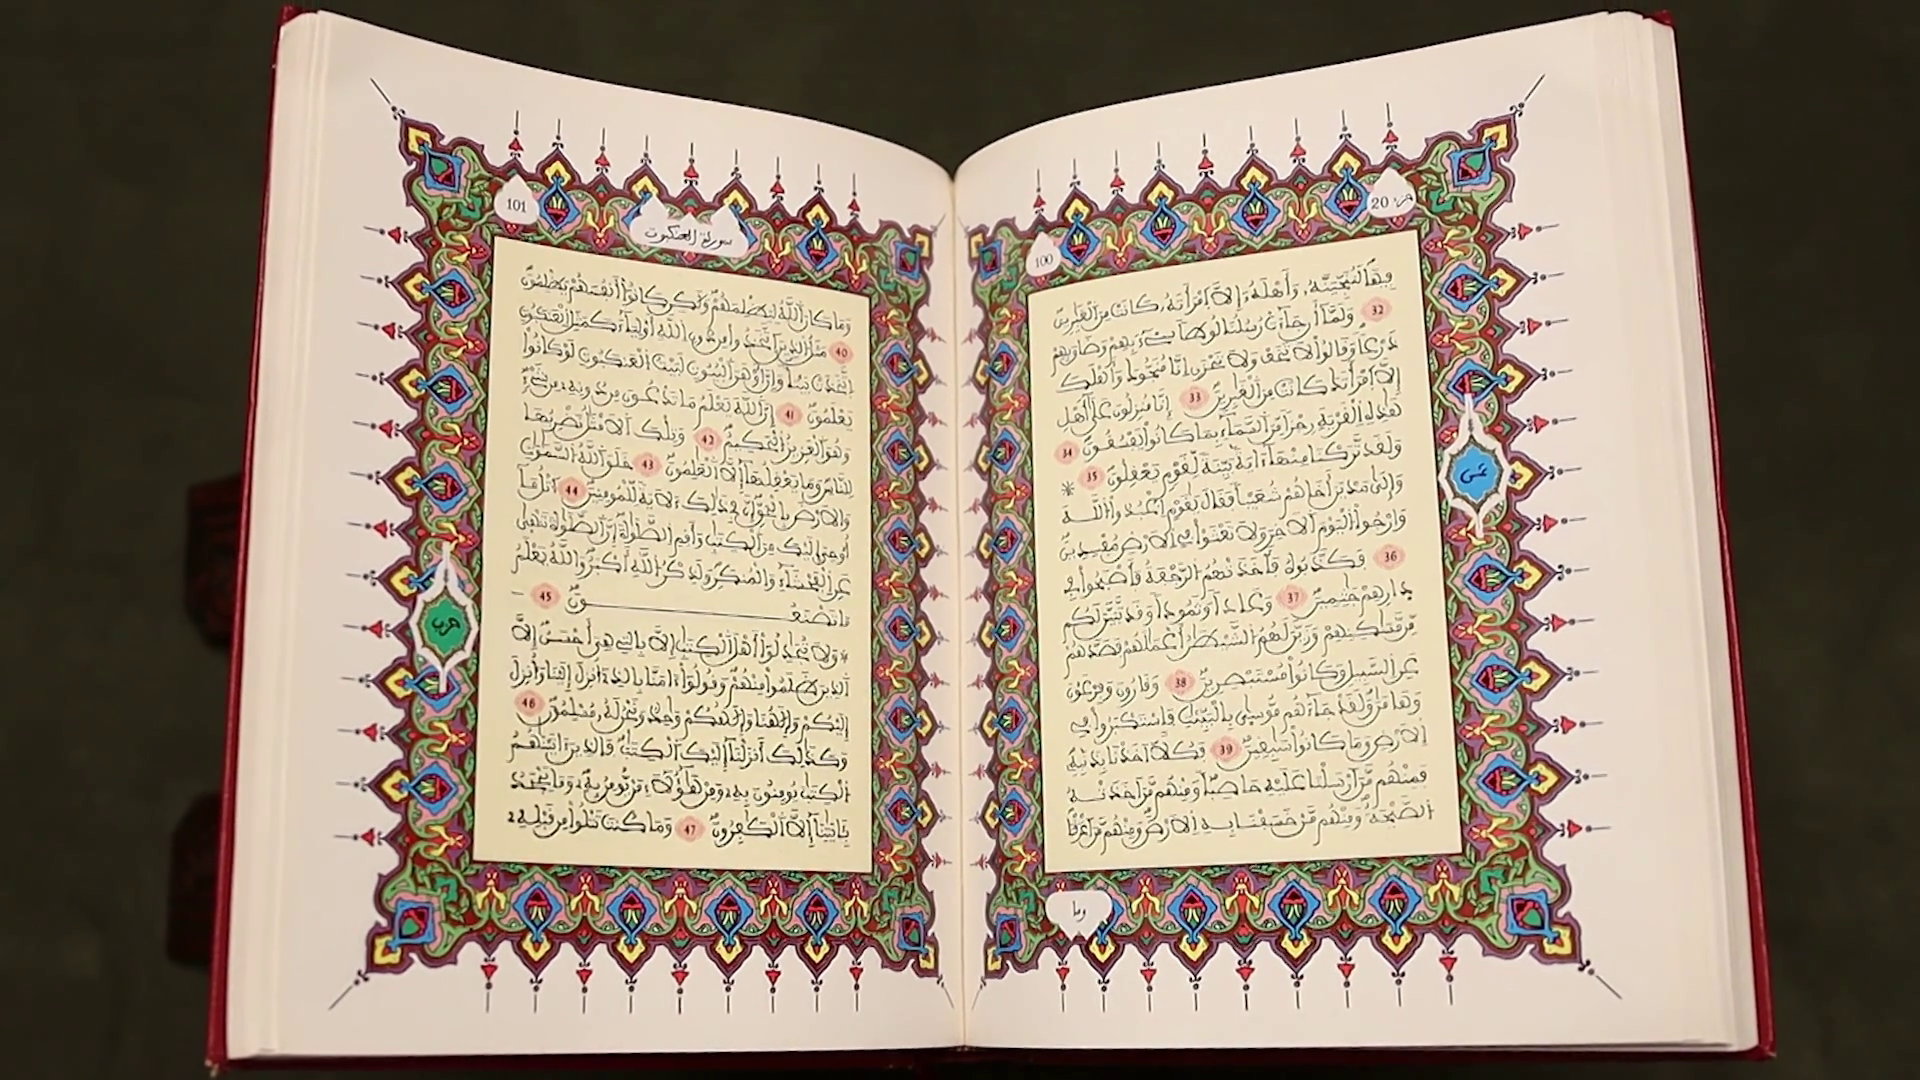 جزء 20
100
فيها لننجينه وأهله إلا امرأته كانت من الغبرين
32 ولما أن جاءت رسلنا لوطا سيء بهم وضاق بهم
ذرعا وقالوا لا تخف ولا تحزن إنا منجوك وأهلك
إلا امرأتك كانت من الغبرين 33 إنا منزلون على أهل
هذه القرية رجزا من السماء بما كانوا يفسقون 34
ولقد تركنا منها ءاية بينة لقوم يعقلون 35 *
وإلى مدين أخاهم شعيبا فقال يقوم اعبدوا الله
وارجوا اليوم الاخر ولا تعثوا في الارض مفسدين
36 فكذبوه فأخذتهم الرجفة فأصبحوا في
دارهم جثمين 37 وعادا وثمودا وقد تبين لكم
من مسكنهم وزين لهم الشيطن أعملهم فصدهم
عن السبيل وكانوا مستبصرين 38 وقارون وفرعون
وهامن ولقد جاءهم موسى بالبينت فاستكبروا في
الارض وما كانوا سبقين 39 فكلا اخذنا بذنبه
فمنهم من ارسلنا عليه حاصبا ومنهم من اخذته
الصيحة ومنهم من خسفنا به الارض ومنهم من اغرقنا
وما
ثمن
101
سورة العنكبوت
وما كان الله ليظلمهم ولكن كانوا أنفسهم يظلمون
40 مثل الذين اتخذوا من دون الله أولياء كمثل العنكبوت
اتخذت بيتا وإن أوهن البيوت لبيت العنكبوت لو كانوا
يعلمون 41 إن الله يعلم ما تدعون من دونه من شيء
وهو العزيز الحكيم 42 وتلك الامثل نضربها
للناس وما يعقلها إلا العلمون 43 خلق الله السموت
والارض بالحق إن في ذلك ءلاية للمومنين 44 اتل ما
أوحي إليك من الكتب وأقم الصلوة إن الصلوة تنهى
عن الفحشاء والمنكر ولذكر الله أكبر والله يعلم
ما تصنعون 45
* ولا تجدلوا أهل الكتب إلا بالتي هي أحسن إلا
الذين ظلموا منهم وقولوا ءامنا بالذي أنزل إلينا وأنزل
إليكم وإلهنا وإلهكم وحد ونحن له مسلمون 46
وكذلك أنزلنا إليك الكتب فالذين ءاتينهم
الكتب يومنون به ومن هؤلاء من يومن به وما يجحد
بئايتنا إلا الكفرون 47 وما كنت تتلوا من قبله
حزب